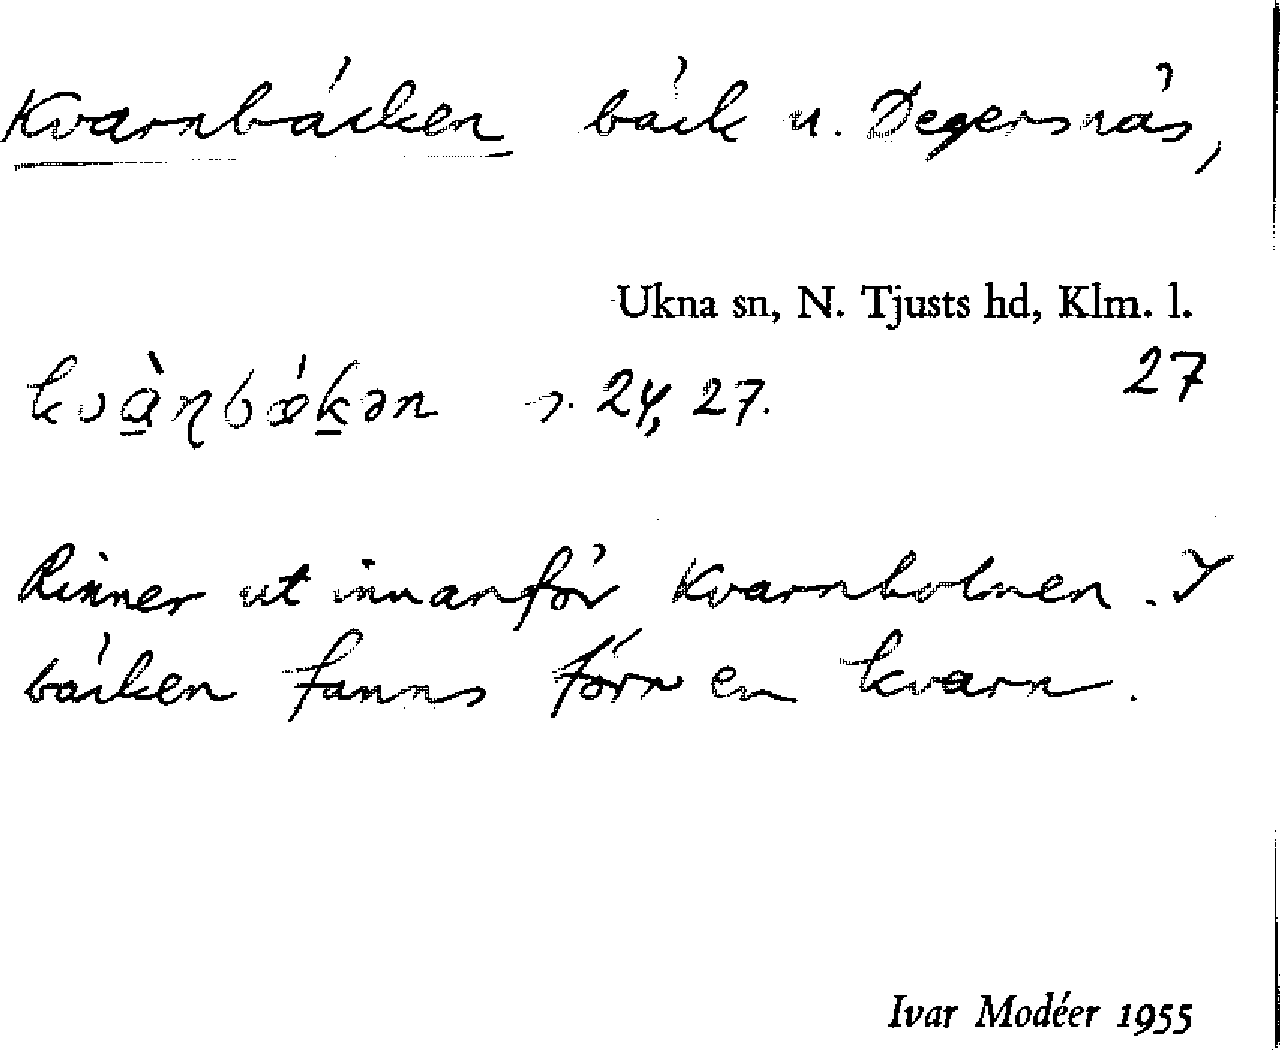 Kvarnbäcken bäck u. Degersnäs,
Ukna sn, N. Tjusts hd, Klm. l.
27
kvàɳbǽkən s. 24, 27.
Rinner ut innanför Kvarnholmen. I
bäcken fanns förr en kvarn.
Ivar Modéer 1955